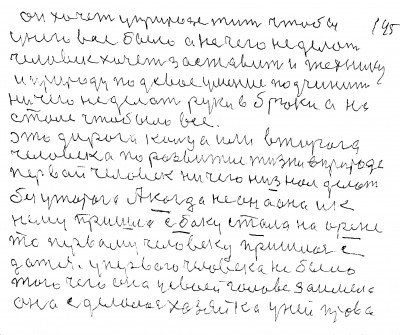 он хочет у природе жить чтобы 145
у него все было а ничего не делат
человек хочет заставит и технику
и природу под свое умение подчинит
ничего не делат руки в брюки а на
столе чтоб было все.
это дорога кому или в ту
человека по развитии жизни в природе
первай человек ничего не знал делат
без утрога А когда не он а она и к
нему пришла с боку стала на арене
то первому человеку пришлося с
датся. у первого человека не было
того чего она у своей голове заимела
она сделалася хозяйка у ней права